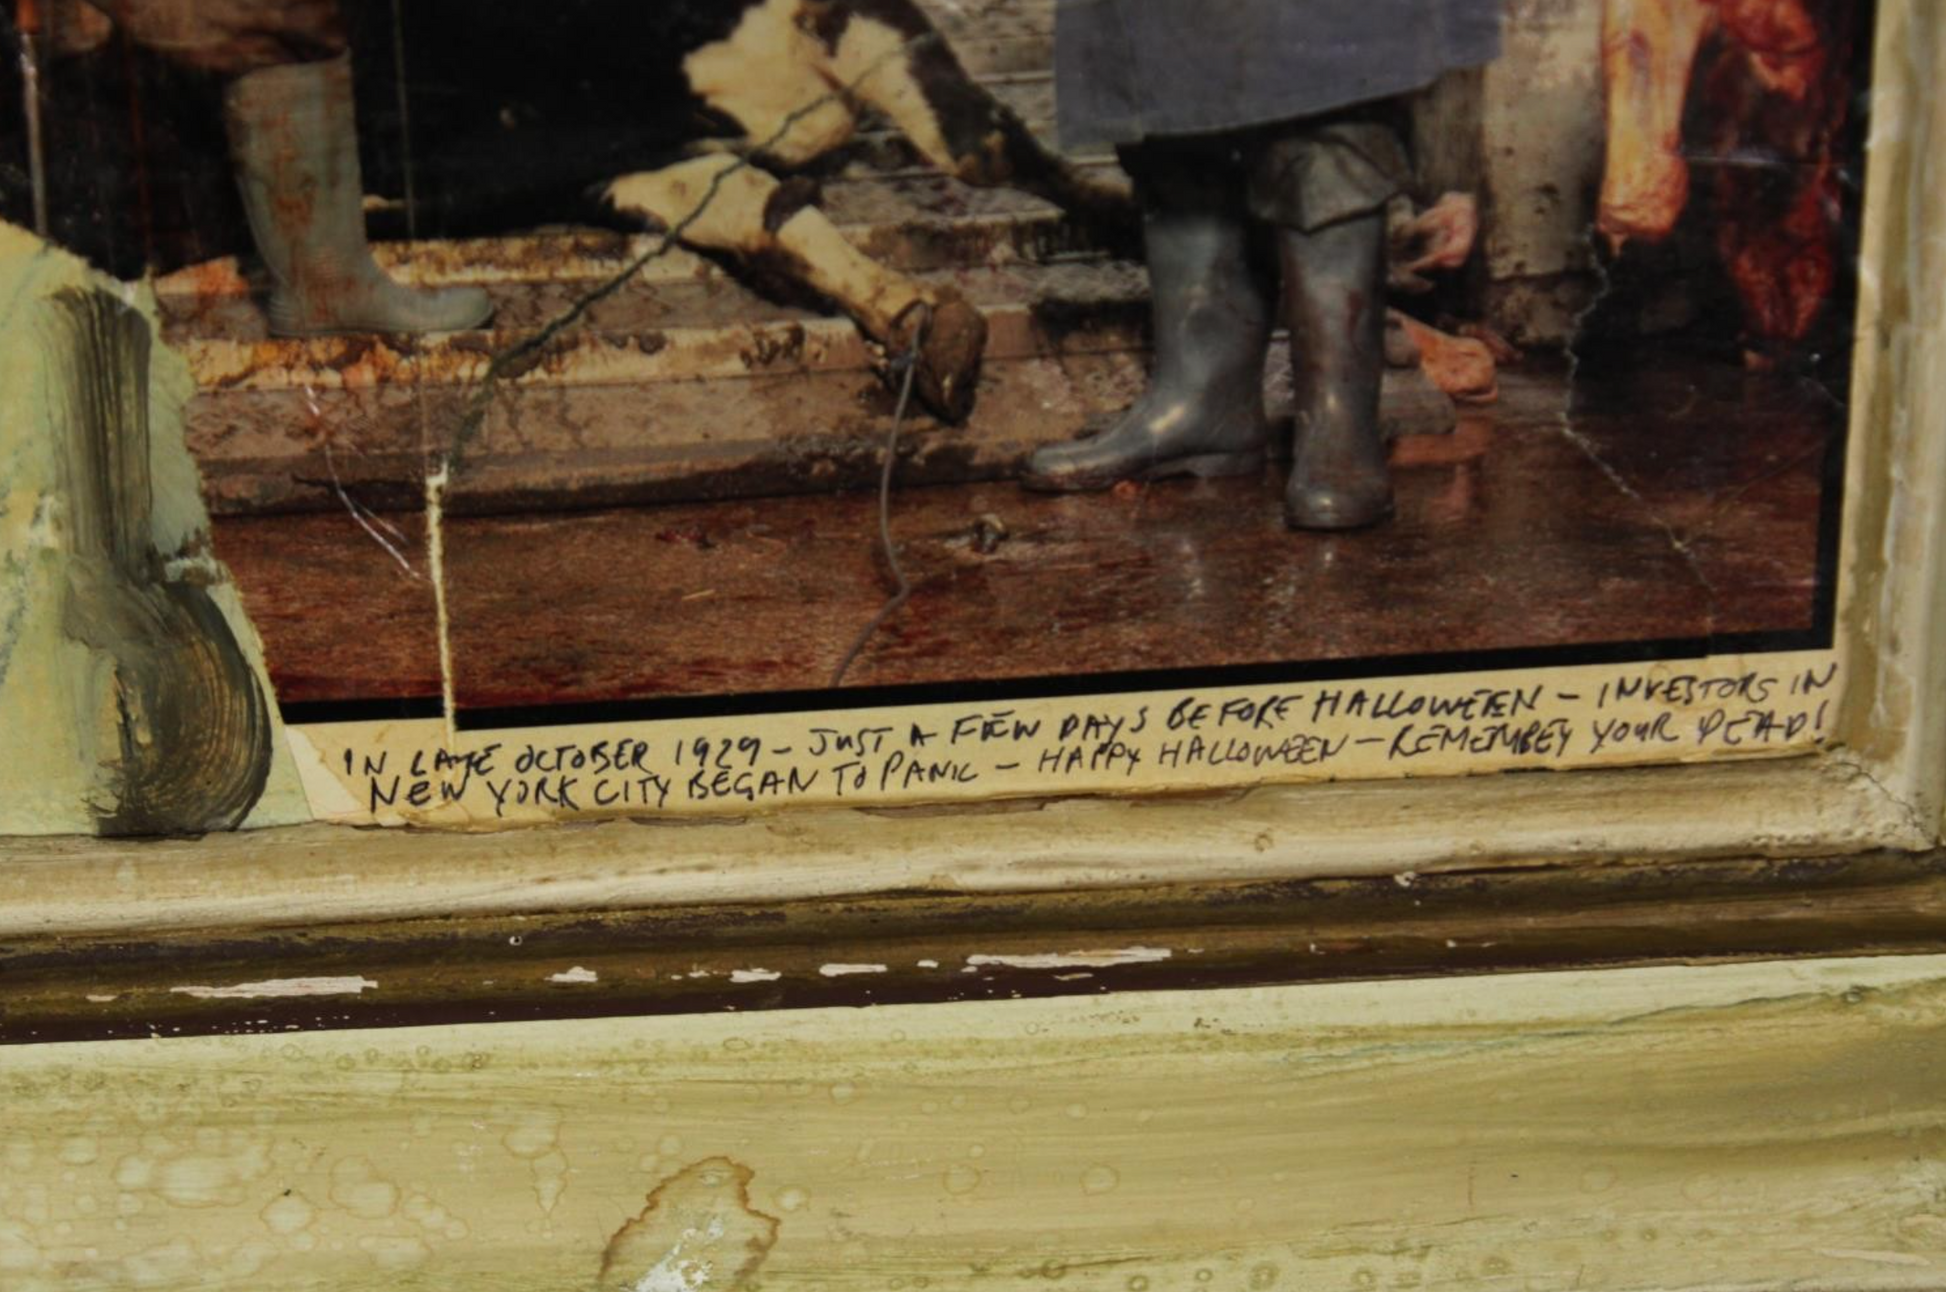 IN LATE OCTOBER 1929 - JUST A FEW DAYS BEFORE HALLOWEEN - INVESTORS IN
NEW YORK CITY BEGAN TO PANIC - HAPPY HALLOWEEN - REMEMBEY YOUR DEAD!